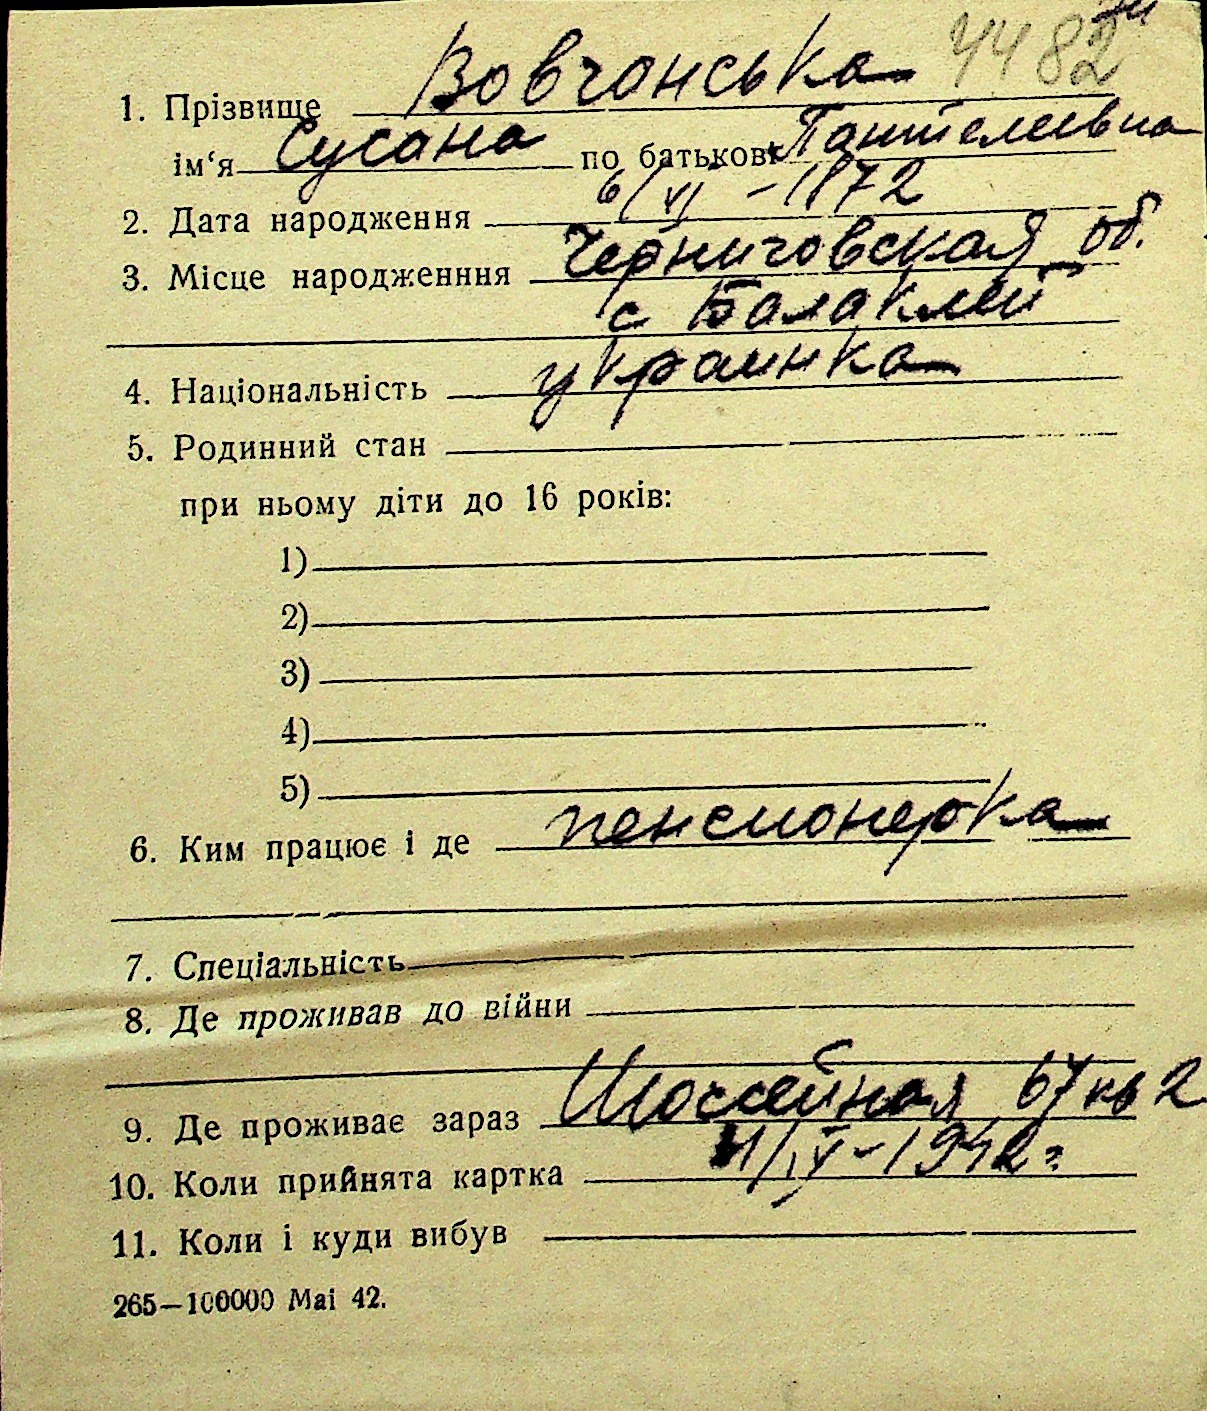 4482
1. Прізвище Вовчанська
ім‘я Сусана по батькові Пантелеевна
2. Дата народження 6/VI - 1872
3. Місце народженння Черниговская об.
с Балаклей
4. Національність украинка
5. Родинний стан
при ньому діти до 16 років:
1)
2)
3)
4)
5)
6. Ким працює і де пенсионерка
7. Спеціальність
8. Де проживав до війни
9. Де проживає зараз Шоссейная 67 кв 2
10. Коли прийнята картка 11/IV-1942г
11. Коли і куди вибув
265—100000 Mai 42.